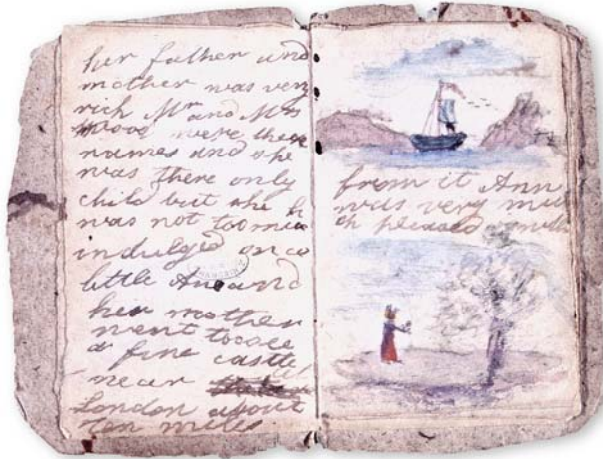 her father and
mother was very
rich Mr and Mrs
Wood were there
names and she
was there only
child but she
was not too much
indulged once
little Ann and
her mother
went to see
a fine castle
near
London about
ten miles
from it Ann
was very mu
ch pleased with